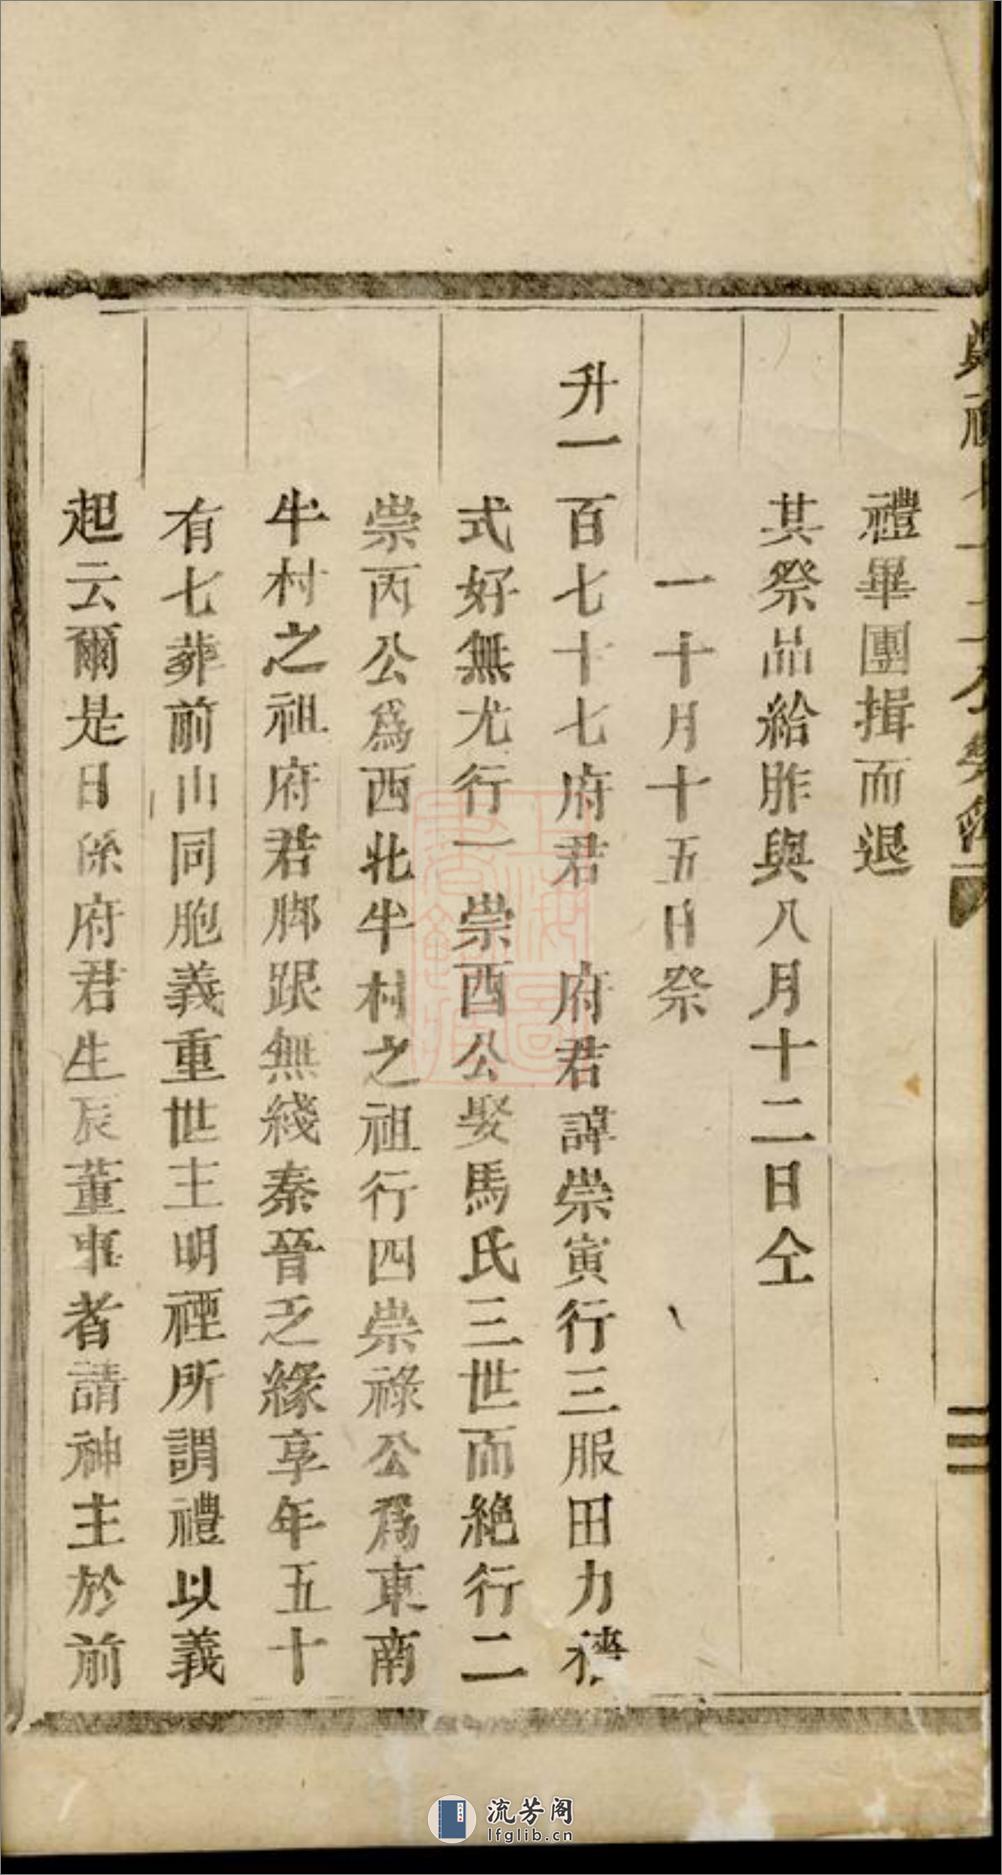 禮畢團揖而退
其祭品給胙與八月十二日仝
一十月十五日祭
升一百七十七府君 府君諱崇寅行三服田力穡
式好無尤行一崇酉公娶馬氏三世而絶行二
崇丙公爲西北牛村之祖行四崇祿公爲東南
牛村之祖府君脚跟無綫秦晉乏緣享年五十
有七葬前山同胞義重世主明禋所謂禮以義
起云爾是日係府君生辰董事者請神主於前
三
流芳阁
lfglib.cn